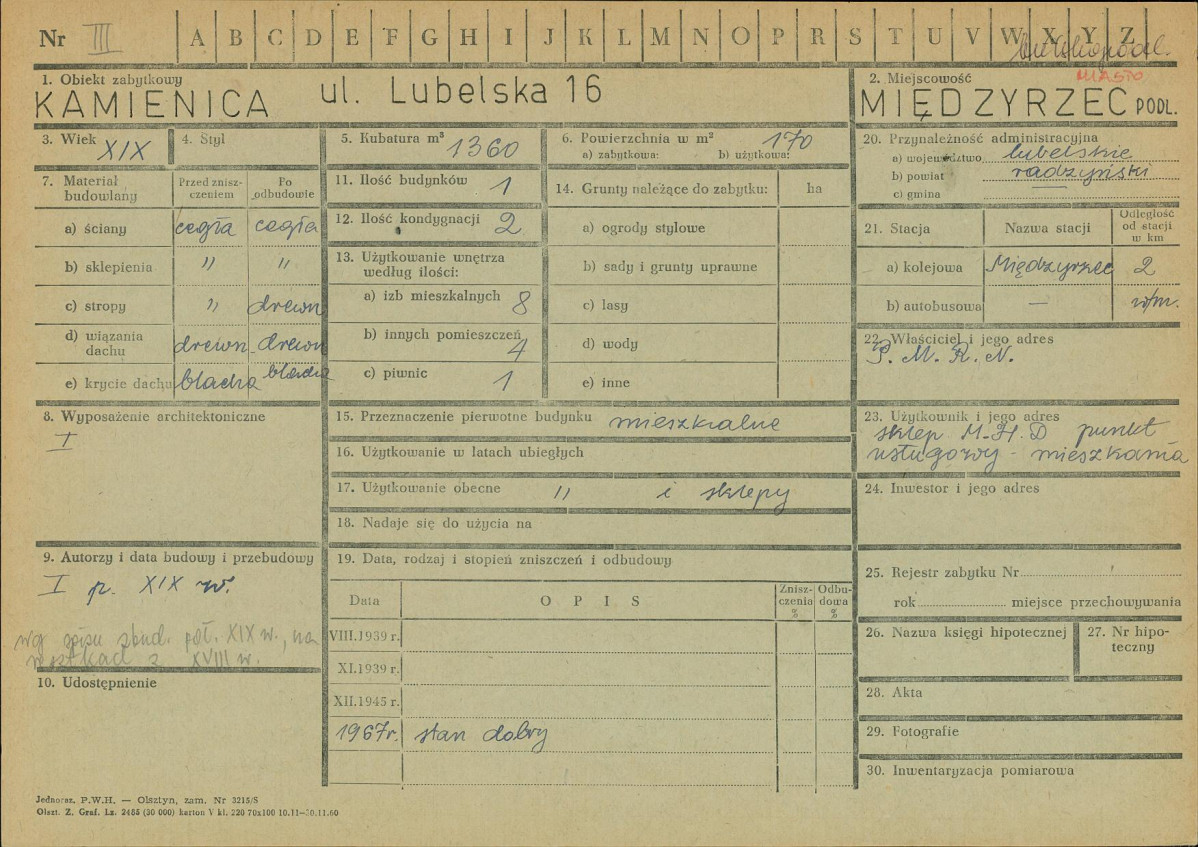 Nr III A B C D E F G H I J K L M N O P R S T U V W X Y Z
MIASTO
1. Obiekt zabytkowy
KAMIENICA ul. Lubelska 16
2. Miejscowość
MIĘDZYRZEC PODL.
3. Wiek XIX
4. Styl
5. Kubatura m³ 1360
6. Powierzchnia w m² 170
a) zabytkowa: b) użytkowa:
7. Materiał budowlany
Przed zniszczeniem
Po odbudowie
a) ściany cegła cegła
b) sklepienia " "
c) stropy " drewn
d) wiązania dachu drewn. drewn
e) krycie dachu blacha blacha
8. Wyposażenie architektoniczne
I
9. Autorzy i data budowy i przebudowy
I p. XIX w.
wg spisu zbud. poł. XIX w., na
XVIII w.
10. Udostępnienie
11. Ilość budynków 1
12. Ilość kondygnacji 2
13. Użytkowanie wnętrza
według ilości:
a) izb mieszkalnych 8
b) innych pomieszczeń 4
c) piwnic 1
14. Grunty należące do zabytku: ha
a) ogrody stylowe
b) sady i grunty uprawne
c) lasy
d) wody
e) inne
15. Przeznaczenie pierwotne budynku mieszkalne
16. Użytkowanie w latach ubiegłych
17. Użytkowanie obecne " i sklepy
18. Nadaje się do użycia na
19. Data, rodzaj i stopień zniszczeń i odbudowy
Data
OPIS
Zniszczenia %
Odbudowa %
VIII.1939 r.
XI.1939 r.
XII.1945 r.
1967r. stan dobry
20. Przynależność administracyjna
a) województwo lubelskie
b) powiat radzyński
c) gmina —
21. Stacja
Nazwa stacji
Odległość od stacji w km
a) kolejowa Międzyrzec 2
b) autobusowa — w/m.
22. Właściciel i jego adres
P. M. R. N.
23. Użytkownik i jego adres
sklep M.H.D punkt
usługowy - mieszkania
24. Inwestor i jego adres
25. Rejestr zabytku Nr
rok miejsce przechowywania
26. Nazwa księgi hipotecznej
27. Nr hipoteczny
28. Akta
29. Fotografie
30. Inwentaryzacja pomiarowa
Jednoraz. P.W.H. — Olsztyn, zam. Nr 3215/S
Olszt. Z. Graf. Lz. 2485 (30 000) karton V kl. 220 70x100 10.11—30.11.60